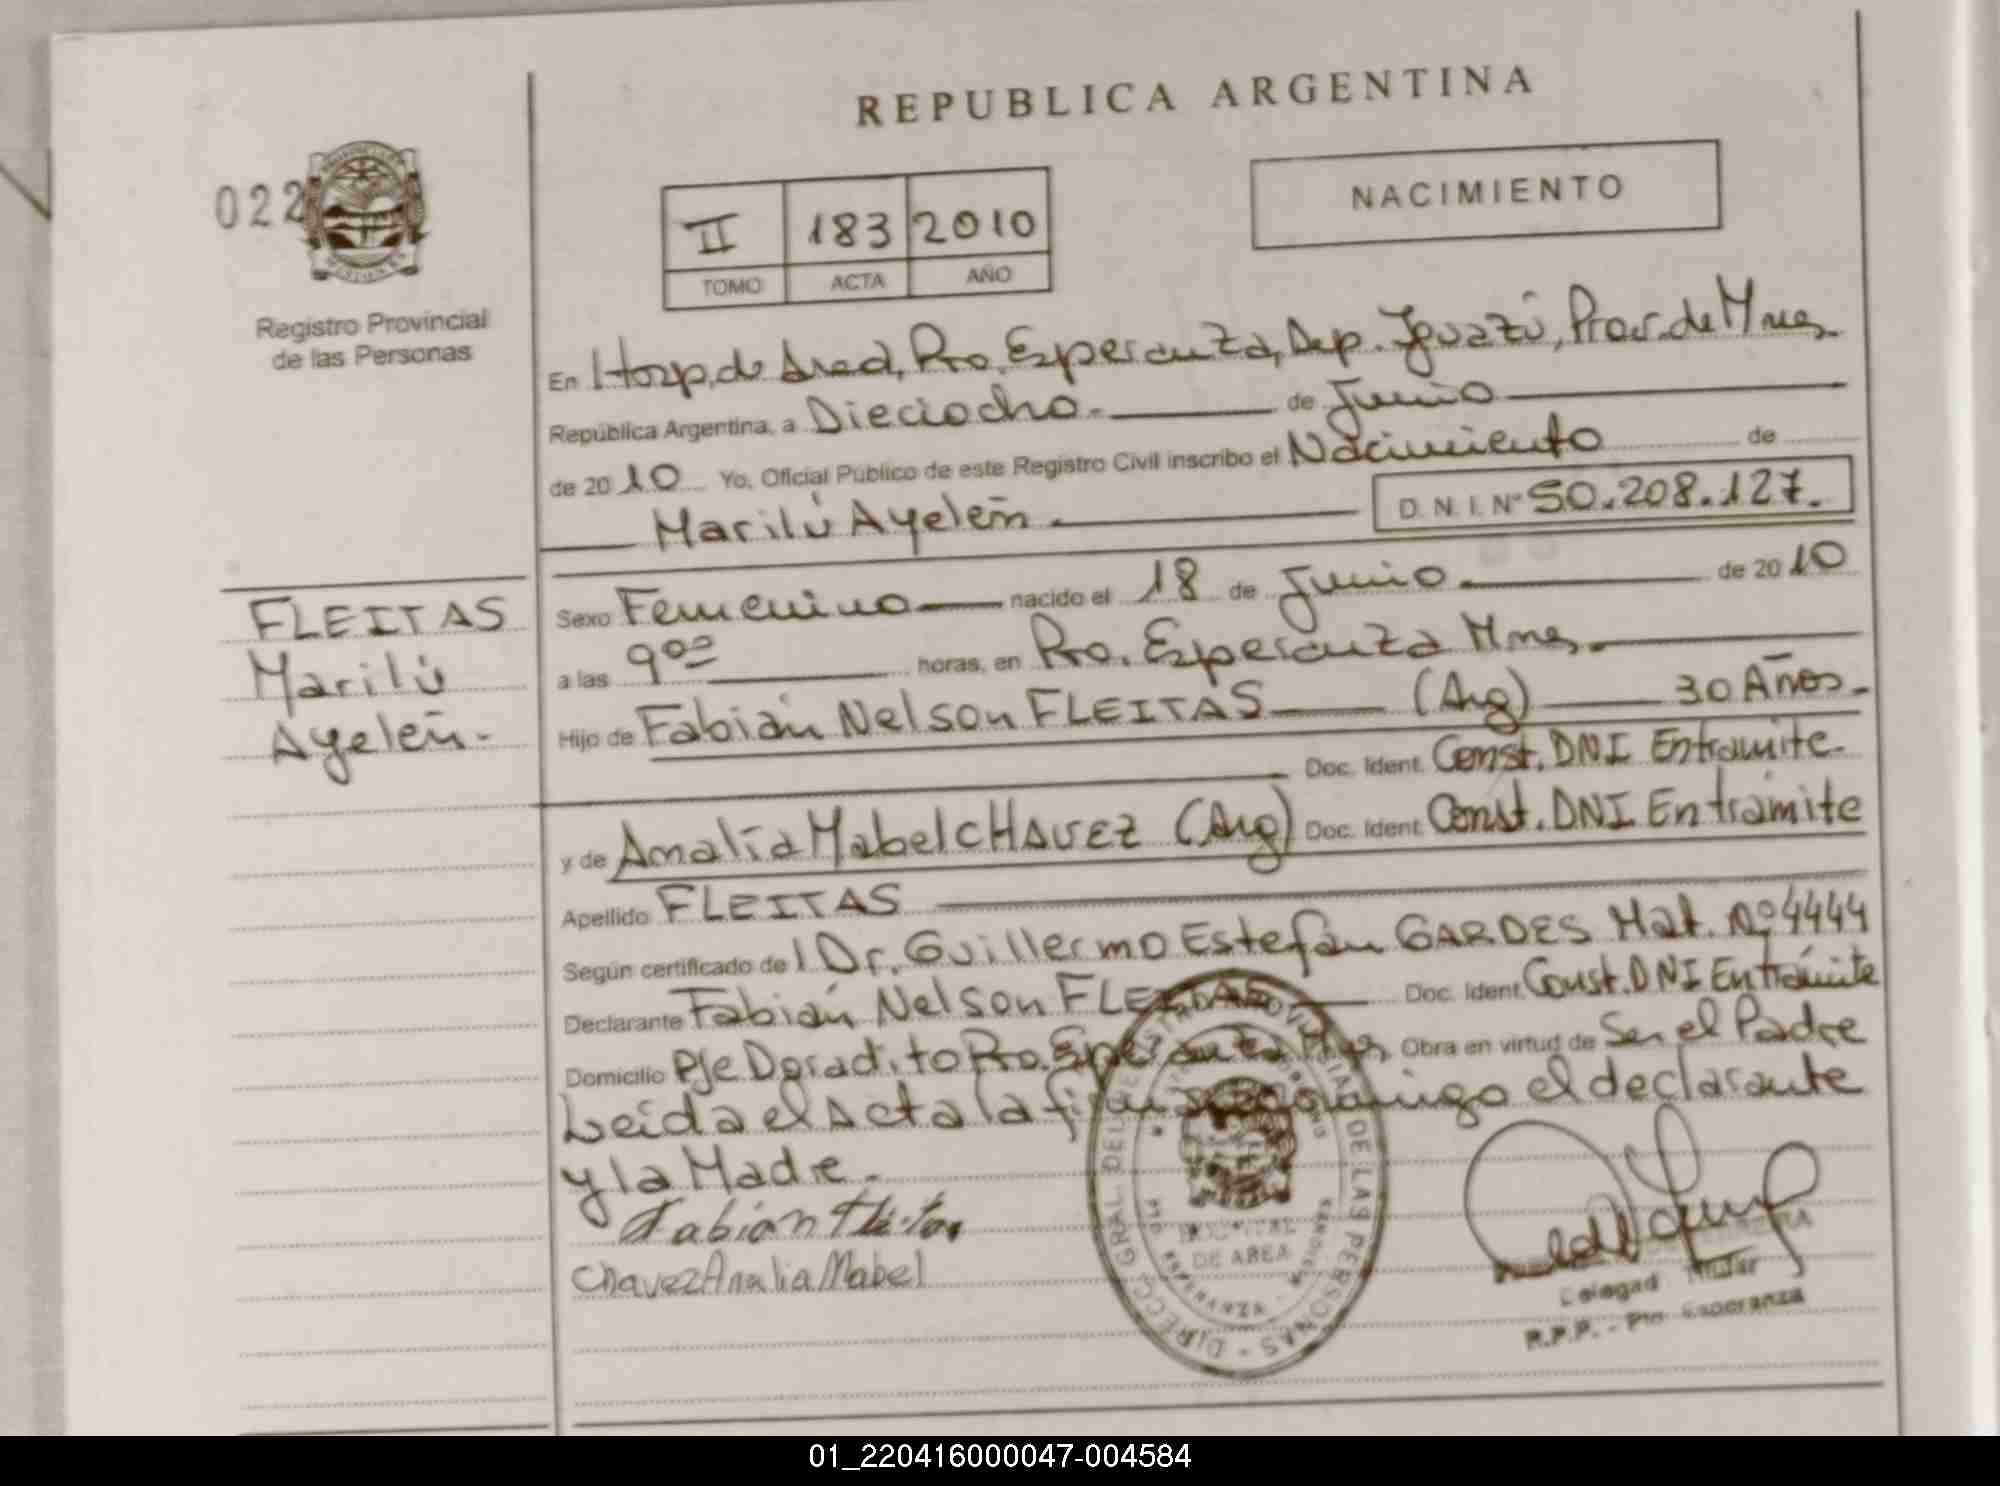 REPUBLICA ARGENTINA
022
NACIMIENTO
II 183 2010
TOMO ACTA AÑO
Registro Provincial
de las Personas
En Hosp. de Area, Pto. Esperanza, Dep. Iguazú, Prov. de Mnes.
República Argentina, a Dieciocho.- de Junio
de 2010 Yo, Oficial Público de este Registro Civil inscribo el Nacimiento de
Marilú Ayelén.
D. N. I. Nº 50.208.127.
FLEITAS
Marilú
Ayelén.-
Sexo Femenino nacido el 18 de Junio. de 2010
a las 9ºº horas, en Pto. Esperanza Mnes.
Hijo de Fabián Nelson FLEITAS (Arg) 30 Años.-
Doc. Ident. Const. DNI Entramite.
y de Amalia Mabel CHAVEZ (Arg) Doc. Ident. Const. DNI En trámite
Apellido FLEITAS
Según certificado del Dr. Guillermo Estefán GARDES Mat. Nº 4444
Declarante Fabián Nelson FLEITAS Doc. Ident. Const. DNI En Trámite
Domicilio Pje Doradito Pto. Esperanza Mnes Obra en virtud de Ser el Padre
Leída el Acta la firman conmigo el declarante
y la Madre.
Fabián Fleitas
Chavez Analia Mabel
DIRECC. GRAL. DEL REGISTRO PROVINCIAL DE LAS PERSONAS
HOSPITAL
DE AREA
PTO ESPERANZA - MISIONES
R.P.P. - Pto. Esperanza
01_220416000047-004584